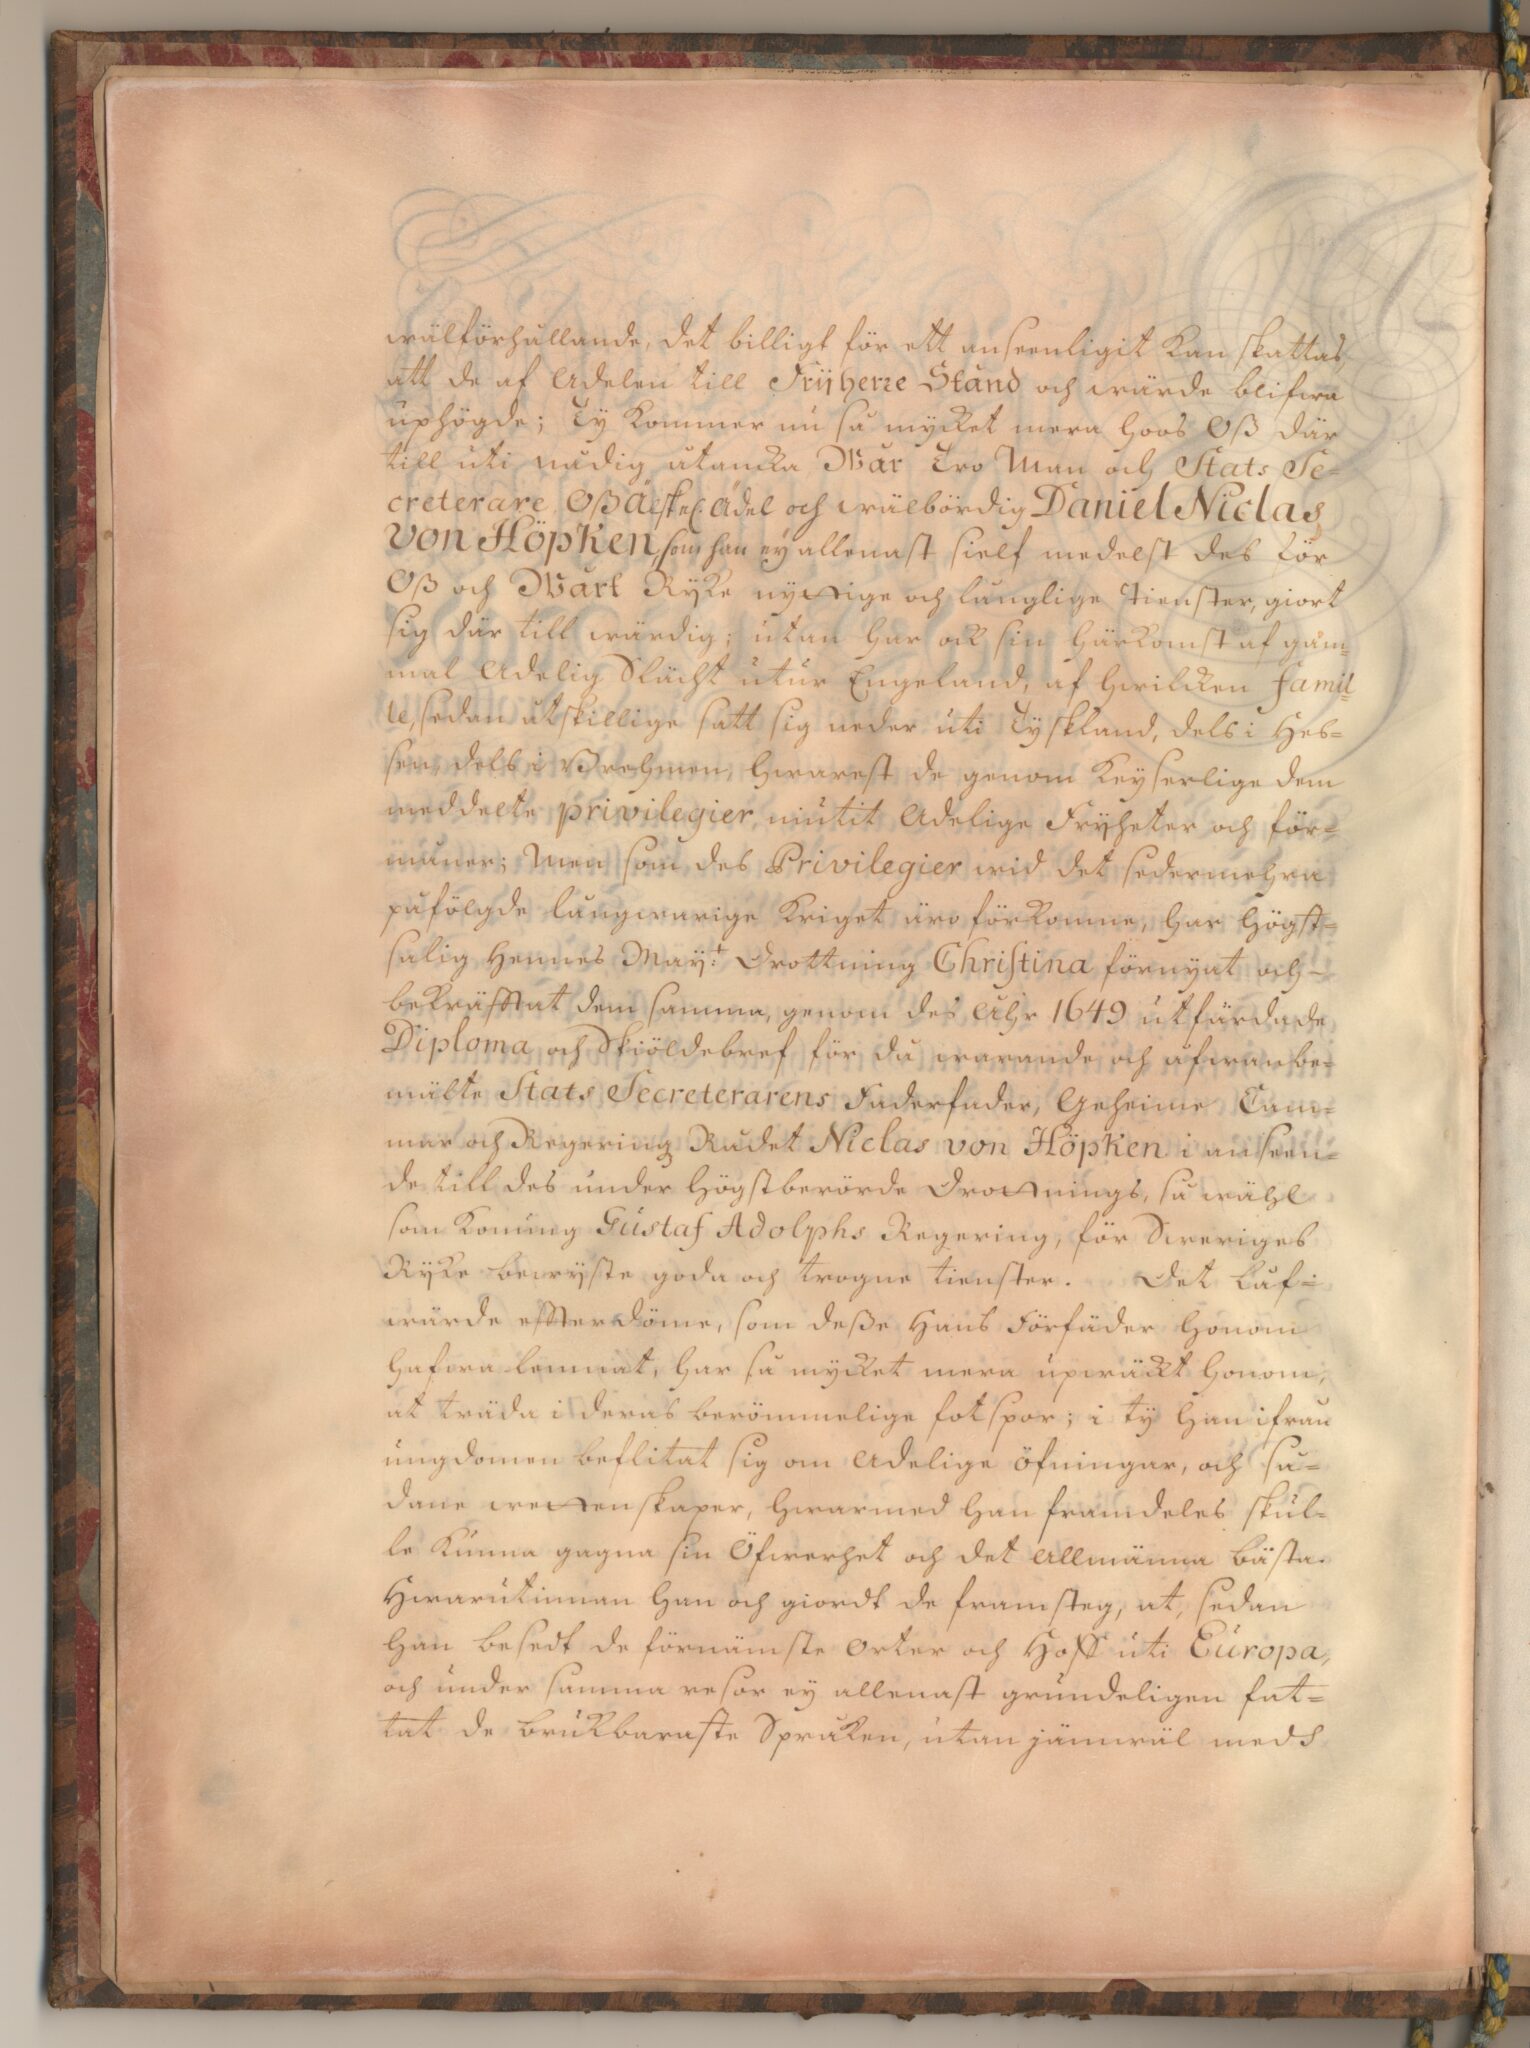 wälförhållande, det billigt för ett anseenligit kan skattas,
att de af Adelen till Frijherre Stånd och wärde blifwa
uphögde; Ty kommer nu så mycket mera hoos Oß där
till uti nådig åtancka Wår Tro Man och Stats Se=
creterare, Oß Älskel. Ädel och wälbördig Daniel Niclas
von Höpken, som han ey allenast sielf medelst des för
Oß och Wårt Ryke nyttige och långlige tienster, giort
sig där till wärdig; utan har ock sin härkomst af gam=
mal Adelig Slächt utur Engeland, af hwilcken famil=
le, sedan åtskillige satt sig neder uti Tyskland, dels i Hes=
sen, dels i Brehmen, hwarest de genom Keyserlige dem
meddelte privilegier, niutit Adelige Fryheter och för=
måner; Men som des Privilegier wid det sedermehra
påfölgde långwarige Kriget äro förkomne, har högst=
salig Hennes May:t Drottning Christina förnyat och
bekräfftat dem samma, genom des Åhr 1649 utfärdade
Diploma och Skiöldebref för då warande och ofwanbe=
mälte Stats Secreterarens Faderfader, Geheime Cam=
mar och Regering Rådet Niclas von Höpken i anseen=
de till des under Högstberörde Drottnings, så wähl
som Konung Gustaf Adolphs Regering, för Sweriges
Ryke bewyste goda och trogne tienster. Det låf=
wärde effterdöme, som deße Hans Förfäder honom
hafwa lemnat, har så mycket mera upwäckt honom,
at träda i deras berömmelige fotspor; i ty han ifrån
ungdomen beflitat sig om Adelige öfningar, och så=
dane wettenskaper, hwarmed han framdeles skul=
le kunna gagna sin Öfwerhet och det Allmänna bästa.
Hwarutinnan han och giordt de framsteg, at, sedan
han besedt de förnämste Orter och Hoff uti Europa,
och under samma resor ey allenast grundeligen fat=
tat de brukbaraste Språken, utan jämwäl meds